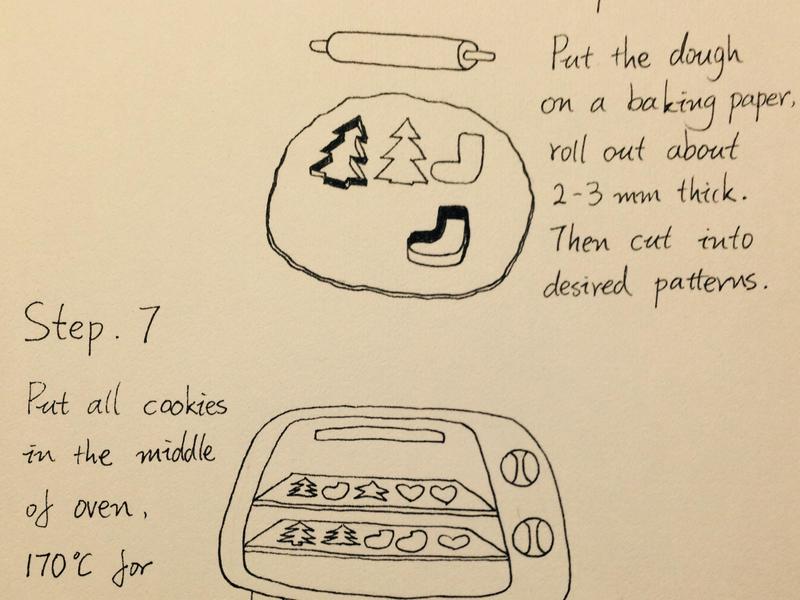 Put the dough
on a baking paper,
roll out about
2-3 mm thick.
Then cut into
desired patterns.
Step. 7
Put all cookies
in the middle
of oven,
170°C for